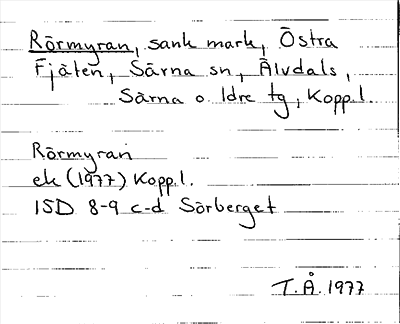 Rörmyran, sank mark, Östra
Fjäten, Särna sn, Älvdals,
Särna o Idre tg, Kopp.l.
Rörmyran
ek (1977) Kopp.l.
15D 8-9 c-d Sörberget
T.Å. 1977